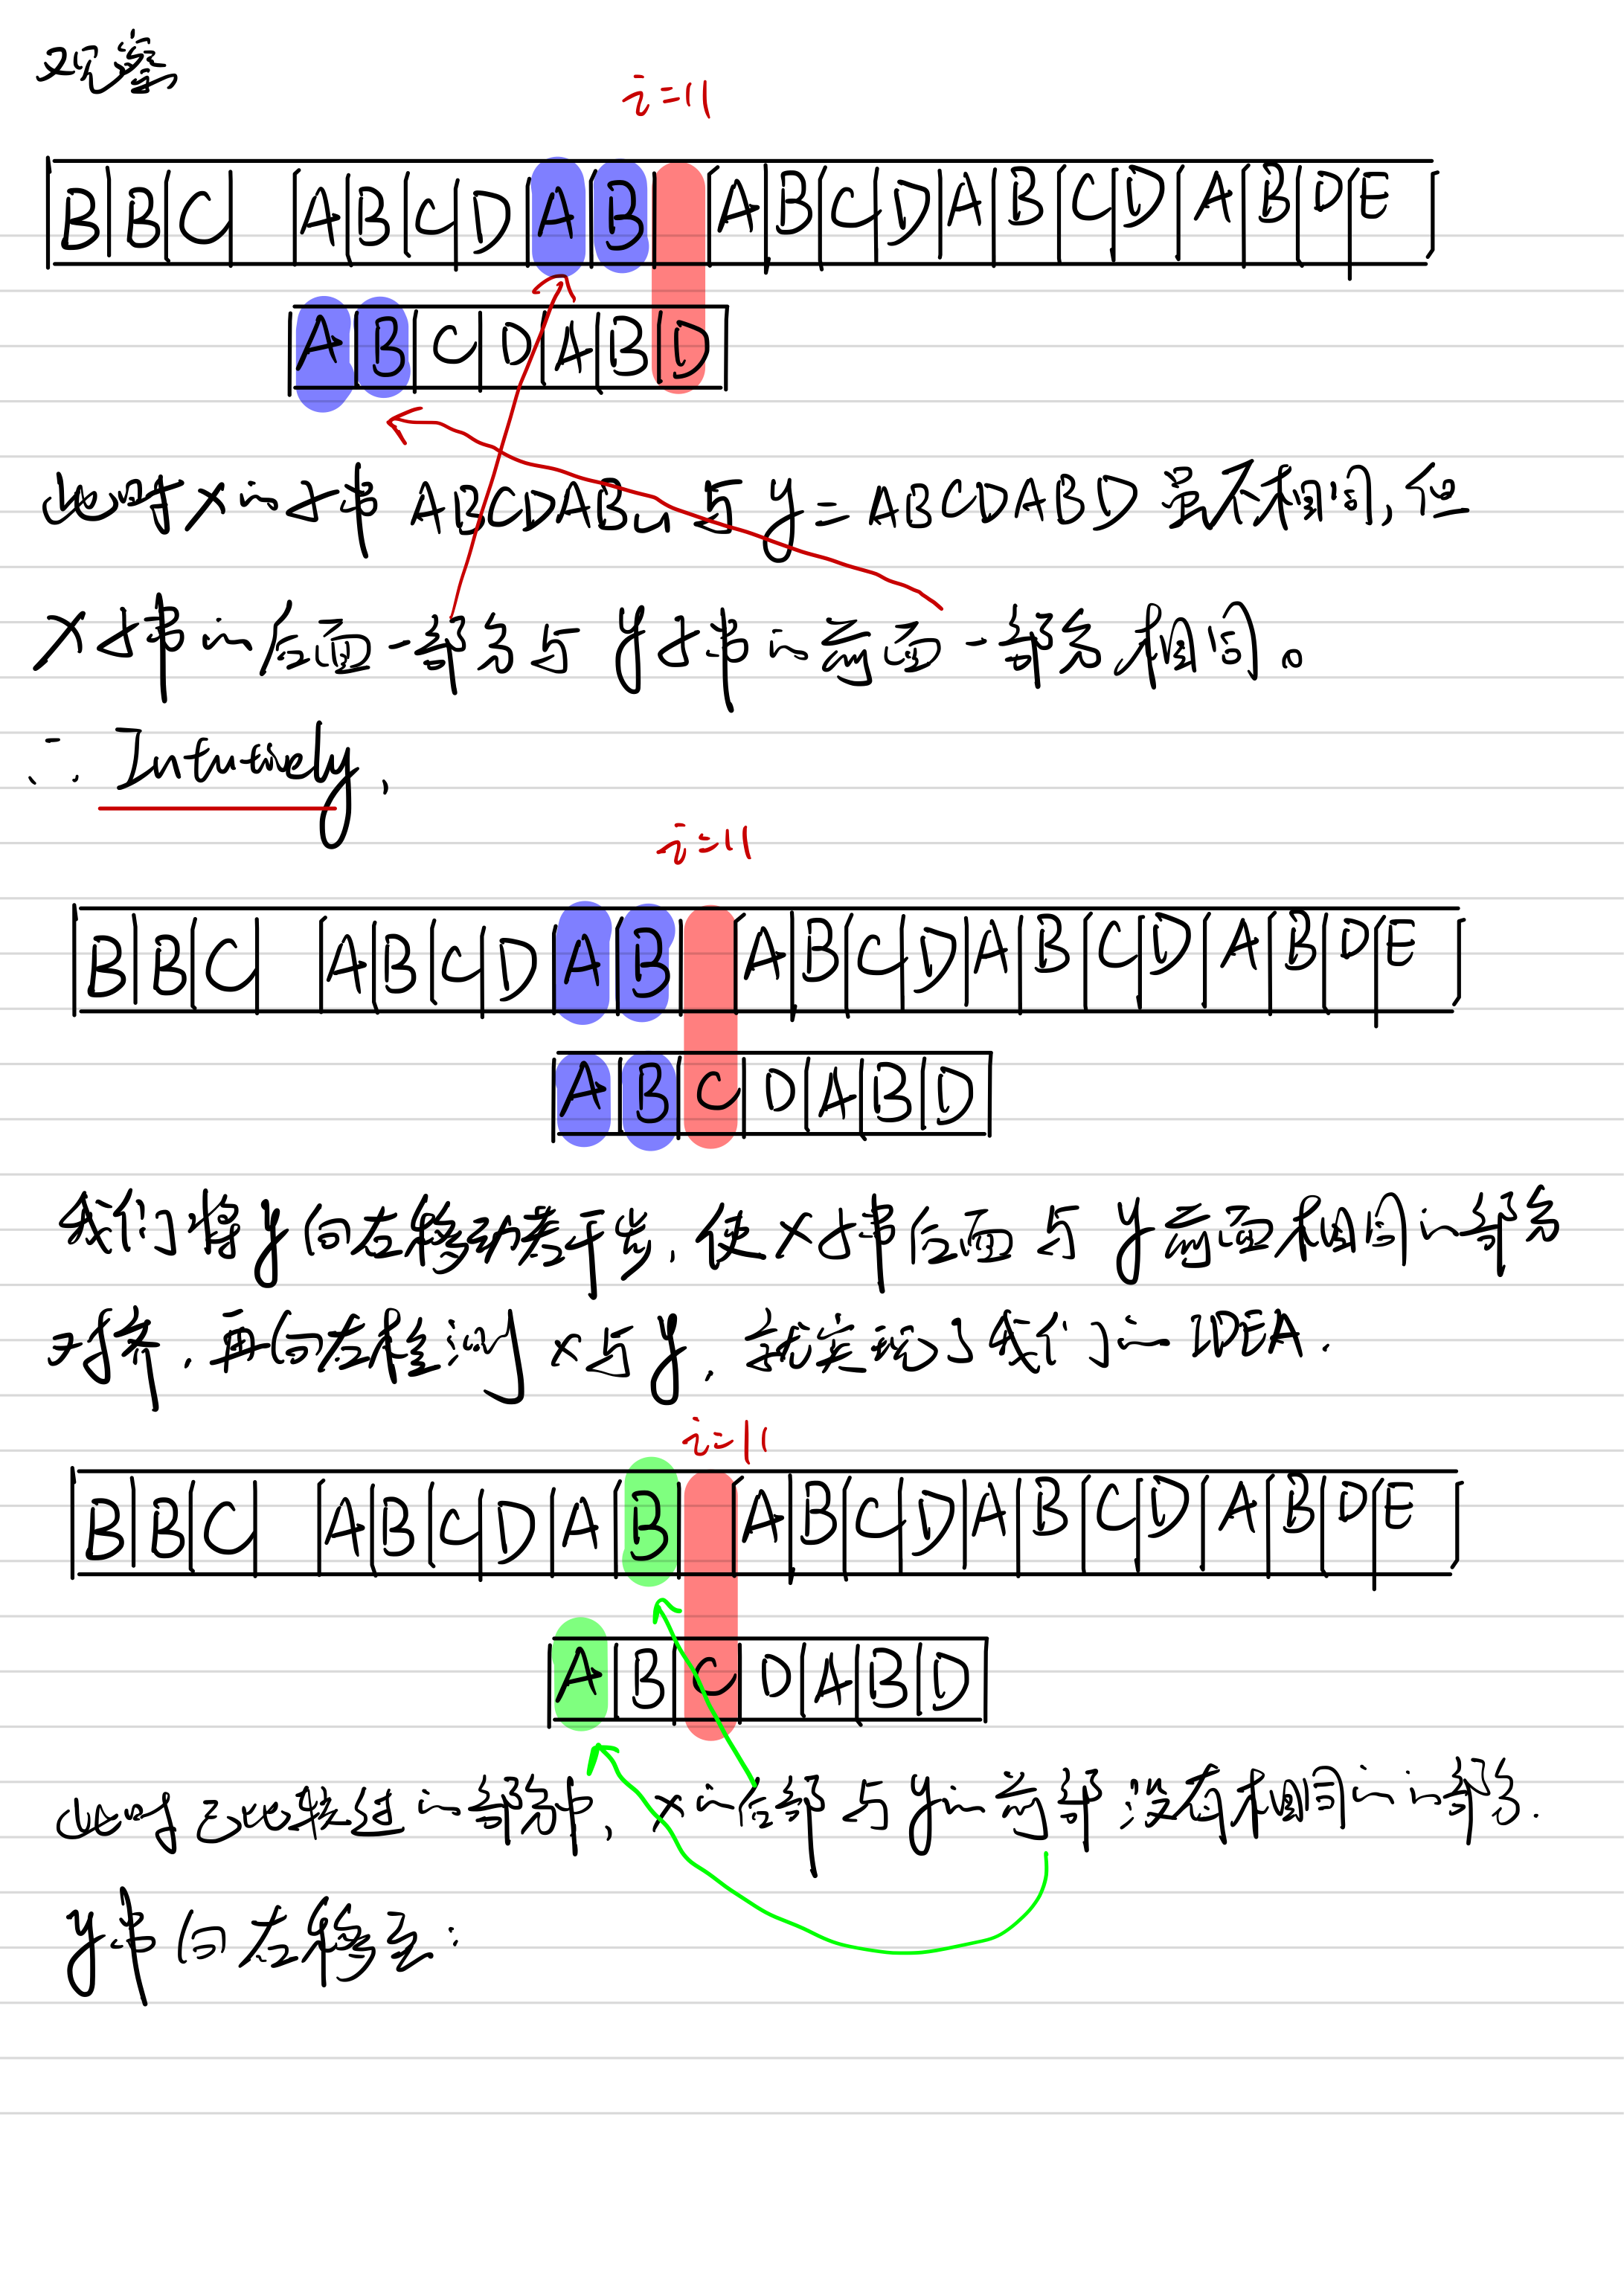 观察
i=11
BBC ABCDAB ABCDABCDABDE
ABCDABD
此时X的子串ABCDAB␣与y=ABCDABD虽不相同,但
X子串的后面一部分与y子串的前面一部分相同。
∴ Intuitively,
i=11
BBC ABCDAB ABCDABCDABDE
ABCDABD
我们将y向右移动若干步,使X子串后面与y前面相同的部分
对齐,再向右检测x与y,就实现了我们的IDEA.
i=11
BBC ABCDAB ABCDABCDABDE
ABCDABD
此时已比较过的部分中,x的后部与y的前部没有相同的部分.
y串向右移至: